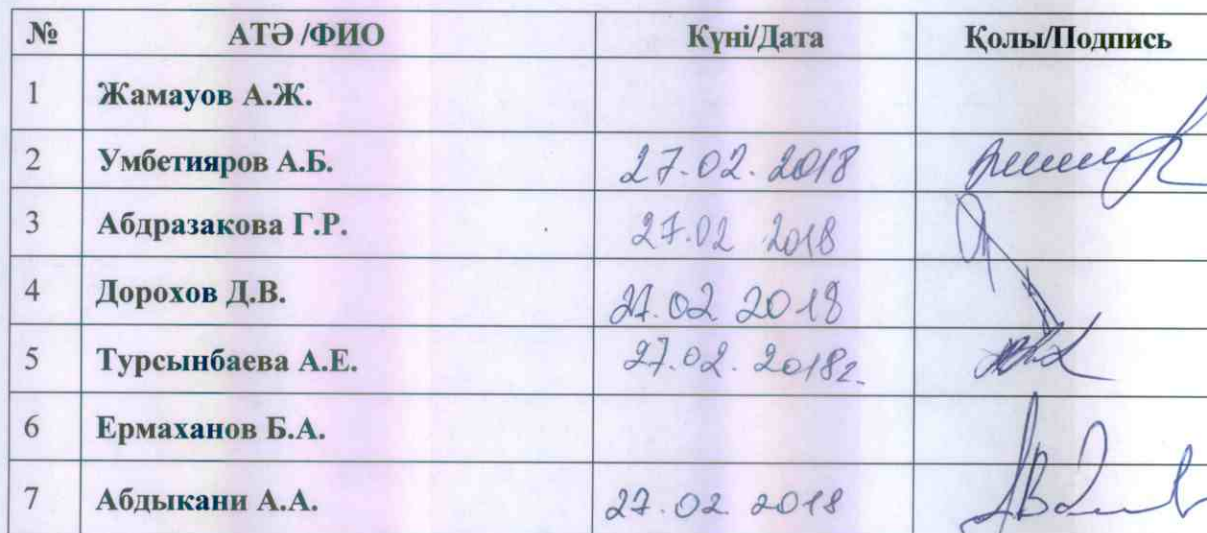 № АТӘ /ФИО Күні/Дата Қолы/Подпись
1 Жамауов А.Ж.
2 Умбетияров А.Б. 27.02.2018
3 Абдразакова Г.Р. 27.02 2018
4 Дорохов Д.В. 27.02 2018
5 Турсынбаева А.Е. 27.02.2018г.
6 Ермаханов Б.А.
7 Абдыкани А.А. 27.02.2018